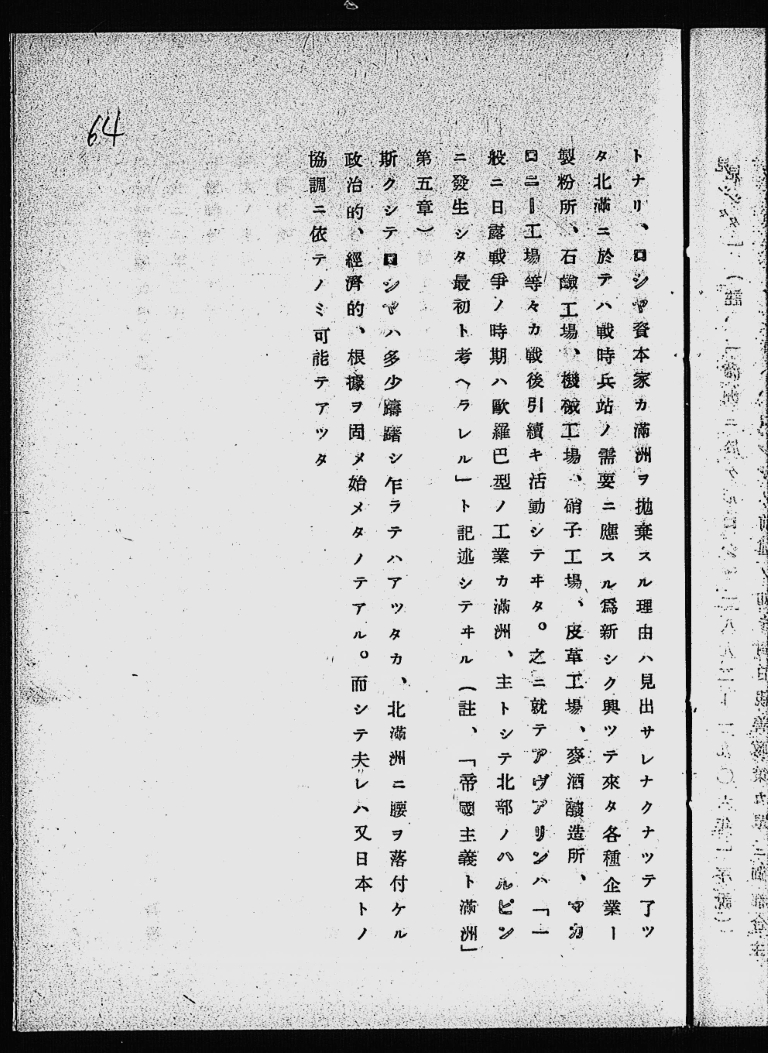 64
トナリ、ロシヤ資本家カ滿洲ヲ拋棄スル理由ハ見出サレナクナツテ了ツ
タ北滿ニ於テハ戰時兵站ノ需要ニ應スル爲新シク興ツテ來タ各種企業ー
製粉所、石鹼工場、機械工場、硝子工場、皮革工場、麥酒釀造所、マカ
ロニー工場等々カ戰後引續キ活動シテヰタ。之ニ就テアヴアリンハ「一
般ニ日露戰爭ノ時期ハ歐羅巴型ノ工業カ滿洲、主トシテ北部ノハルピン
ニ發生シタ最初ト考ヘラレル」ト記述シテヰル（註、「帝國主義ト滿洲」
第五章）
斯クシテロシヤハ多少躊躇シ乍ラテハアツタカ、北滿洲ニ腰ヲ落付ケル
政治的、經濟的、根據ヲ固メ始メタノテアル。而シテ夫レハ又日本トノ
協調ニ依テノミ可能テアツタ